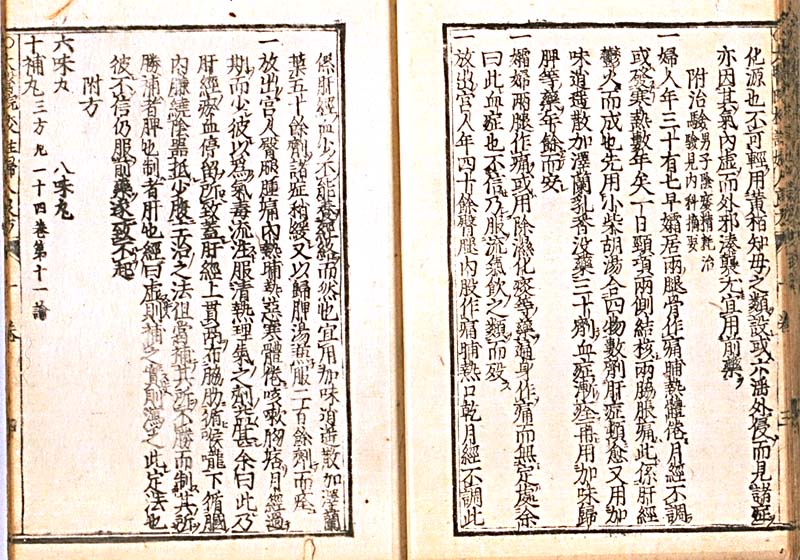 化源也不可輕用黃栢知母之類設或六滛外侵而見諸症
亦因其氣內虛而外邪湊襲尤宜用前藥
附治驗男子陰瘡精耗治
驗見內科摘要
一婦人年三十有七早孀居兩腿骨作痛晡熱體倦月經不調
或發寒熱數年矣一日頸項兩側結核兩脇脹痛此係肝經
鬱火而成也先用小柴胡湯合四物數劑肝症頓愈又用加
味逍遥散加澤蘭乳香没藥三十劑血症漸痊再用加味歸
脾等藥年餘而安
一孀婦兩腿作痛或用除濕化痰等藥遍身作痛而無定處余
曰此血症也不信乃服流氣飲之類而殁
一放出宮人年四十餘臀腿內股作痛晡熱口乾月經不調此
係肝經血少不能養經絡而然也宜用加味逍遥散加澤蘭
葉五十餘劑諸症稍緩又以歸脾湯兼服二百餘劑而痊
一放出宮人臀腿腫痛內熱晡熱惡寒體倦咳嗽胸痞月經過
期而少彼以為氣毒流注服清熱理氣之劑益甚余曰此乃
肝經瘀血停留所致蓋肝經上貫膈布脇肋循喉嚨下循膕
內臁繞陰器抵少腹主治之法徂當補其所不勝而制其所
勝補者脾也制者肝也經曰虛則補之實則瀉之此定法也
彼不信仍服前藥遂致不起
附方
六味丸 八味丸
十補丸三方九一十四卷第十一論